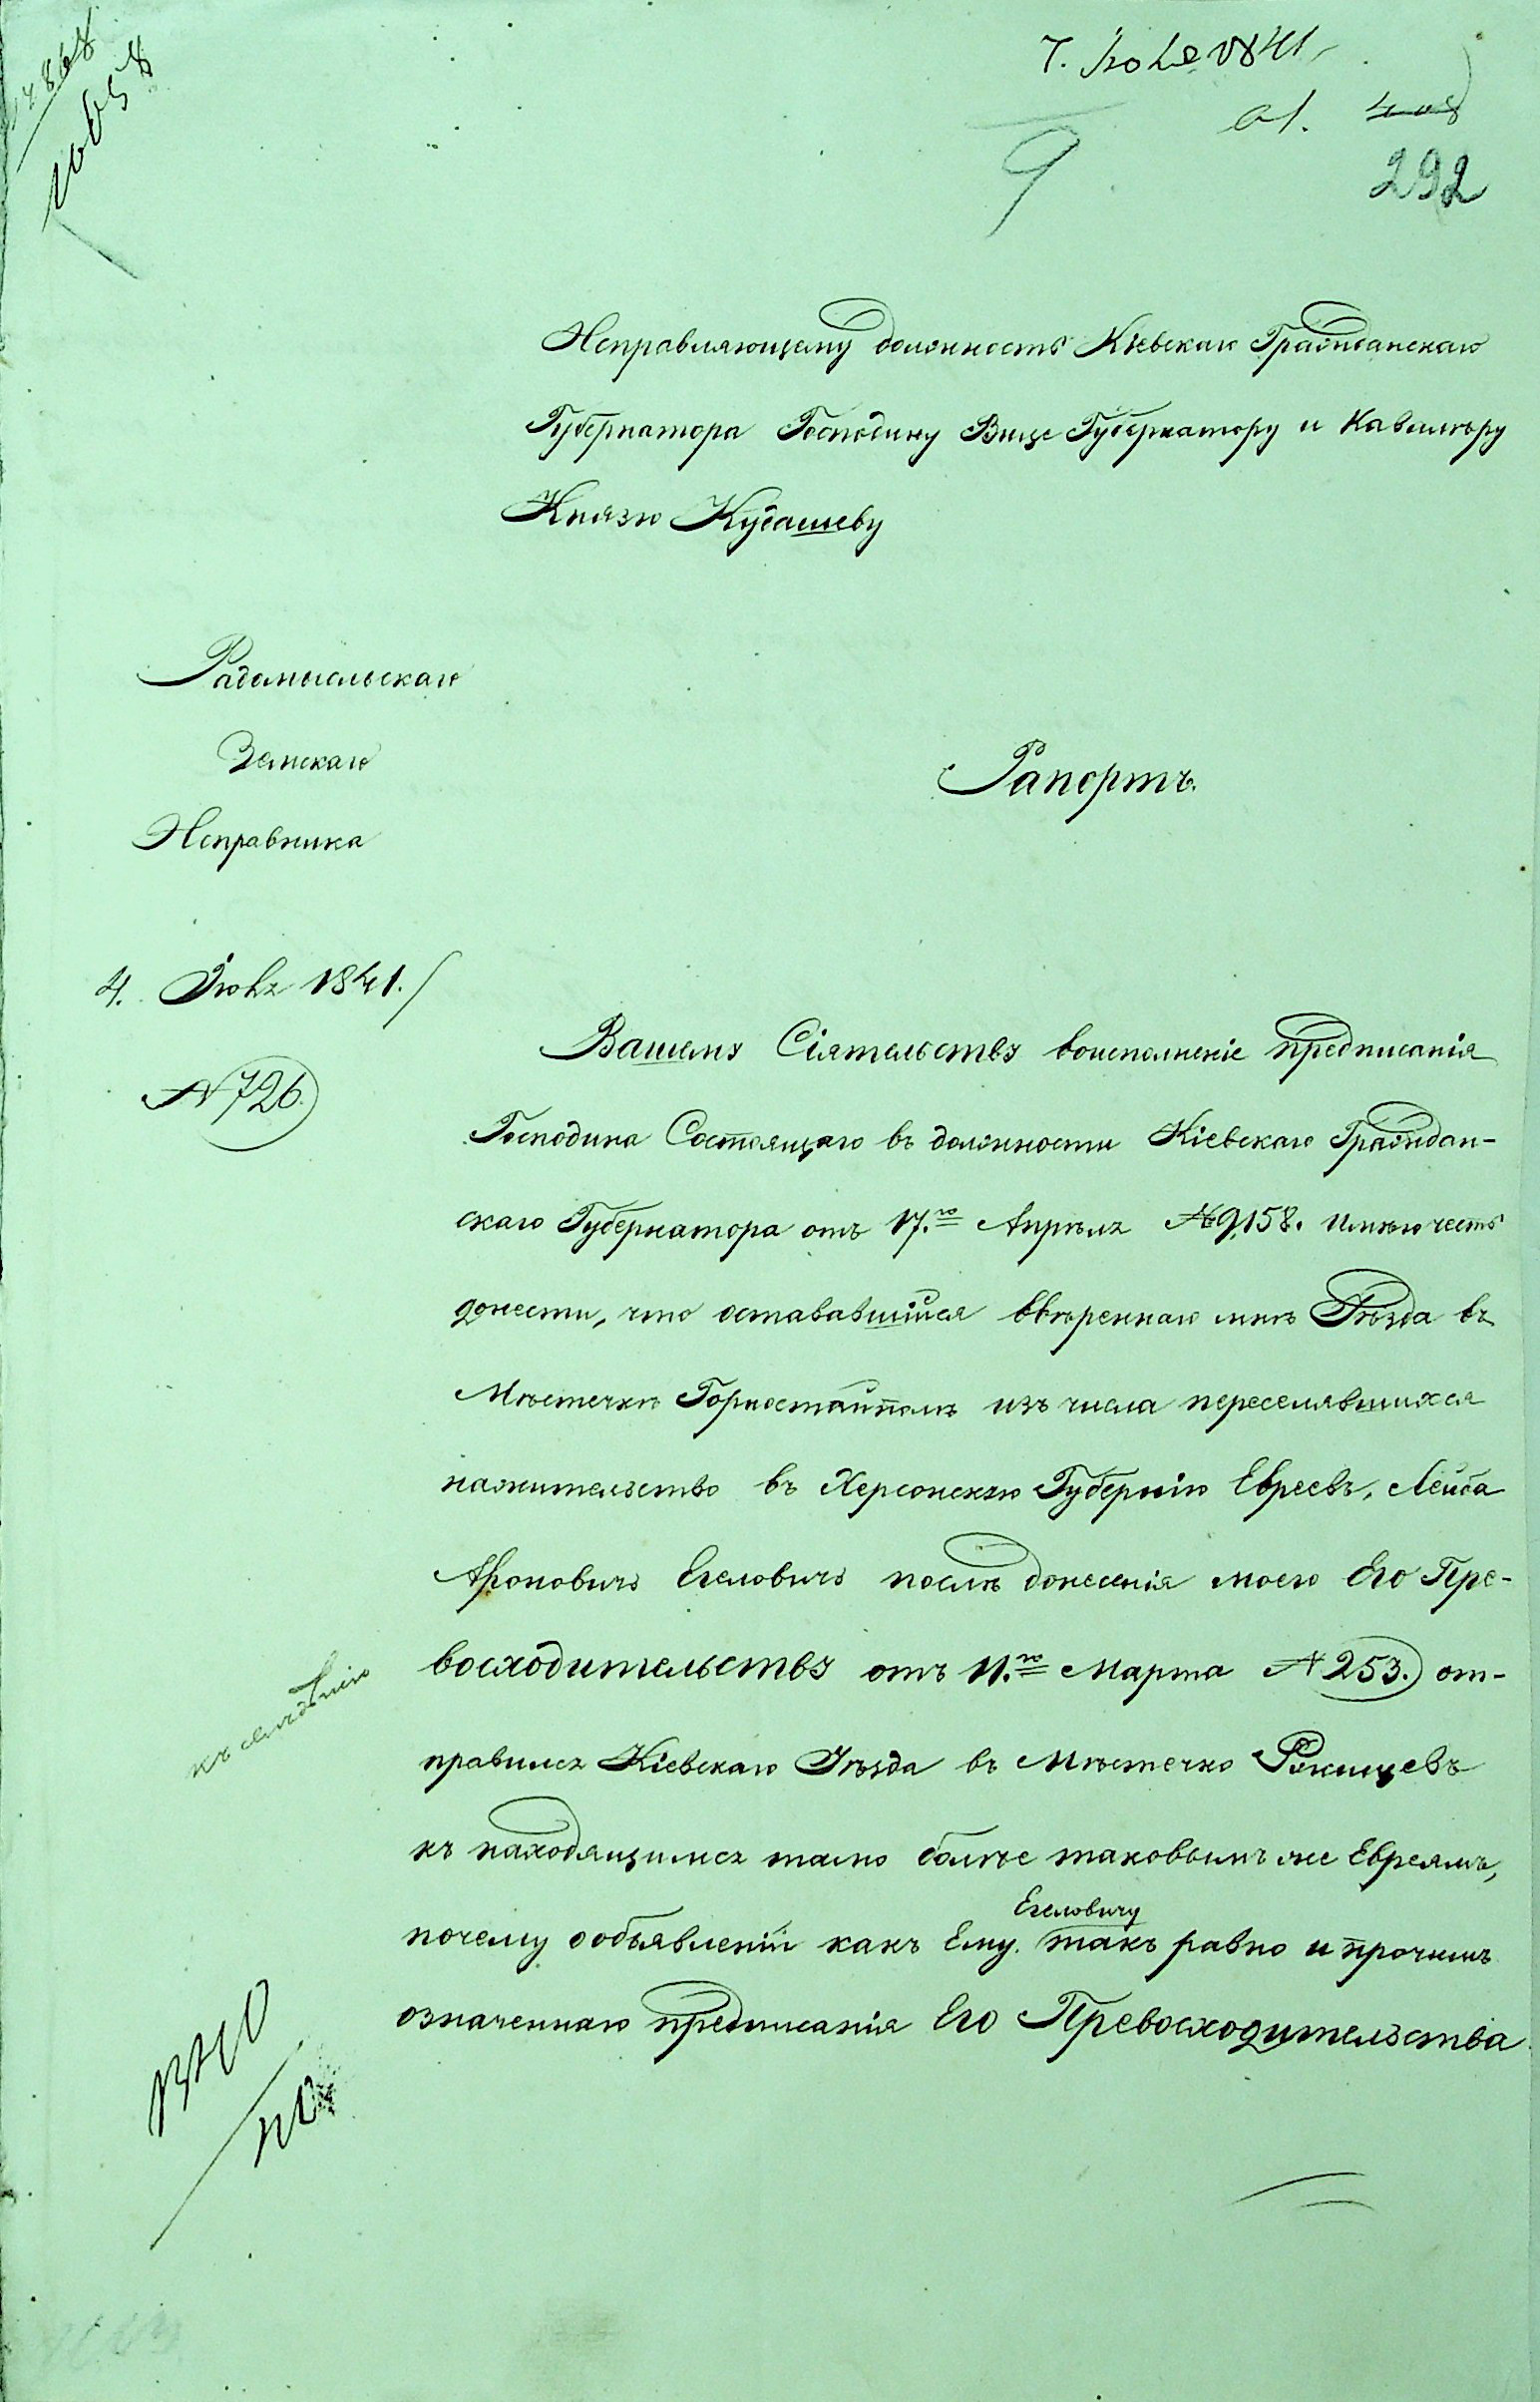 7. Іюля 1841
408
292
9
Исправляющему должность Кіевскаго Гражданскаго
Губернатора Господину Вице Губернатору и Кавалеру
Князю Кудашеву
Радомысльскаго
Земскаго
Исправника
Рапортъ.
4. Іюля 1841.
№ 726.
Вашему Сіятельству воисполненіе предписанія
Господина Состоящаго въ должности Кіевскаго Граждан-
скаго Губернатора отъ 17.го Апрѣля № 9,158. имѣю честь
донести, что остававшійся ввѣреннаго мнѣ Уѣзда въ
Мѣстечкѣ Горностайполѣ изъ числа переселявшихся
нажительство въ Херсонскую Губернію Евреевъ, Лейба
Ароновичъ Егеловичъ послѣ донесенія моего Его Пре-
восходительству отъ 11.го Марта № 253. от-
правился Кіевскаго Уѣзда въ Мѣстечко Ржищевъ
къ находящимся тамо болѣе таковымъ же Евреямъ,
Егеловичу
почему ообъявленіи какъ Ему. такъ равно и прочимъ
означеннаго предписанія Его Превосходительства